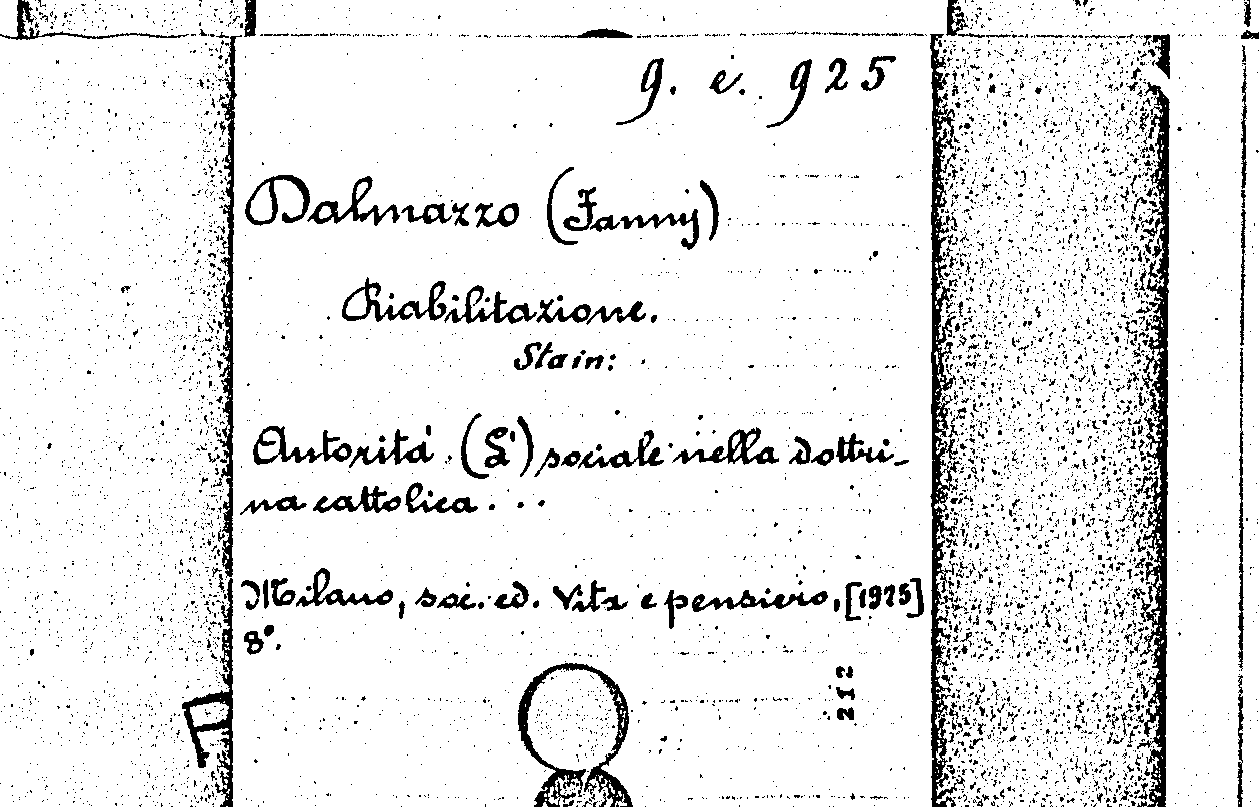 g. e. 925
Dalmazzo (Fanny)
Riabilitazione.
Sta in:
Autorità (L') sociale nella dottri-
na cattolica...
Milano, soc. ed. Vita e pensiero, [1925]
8°.
212